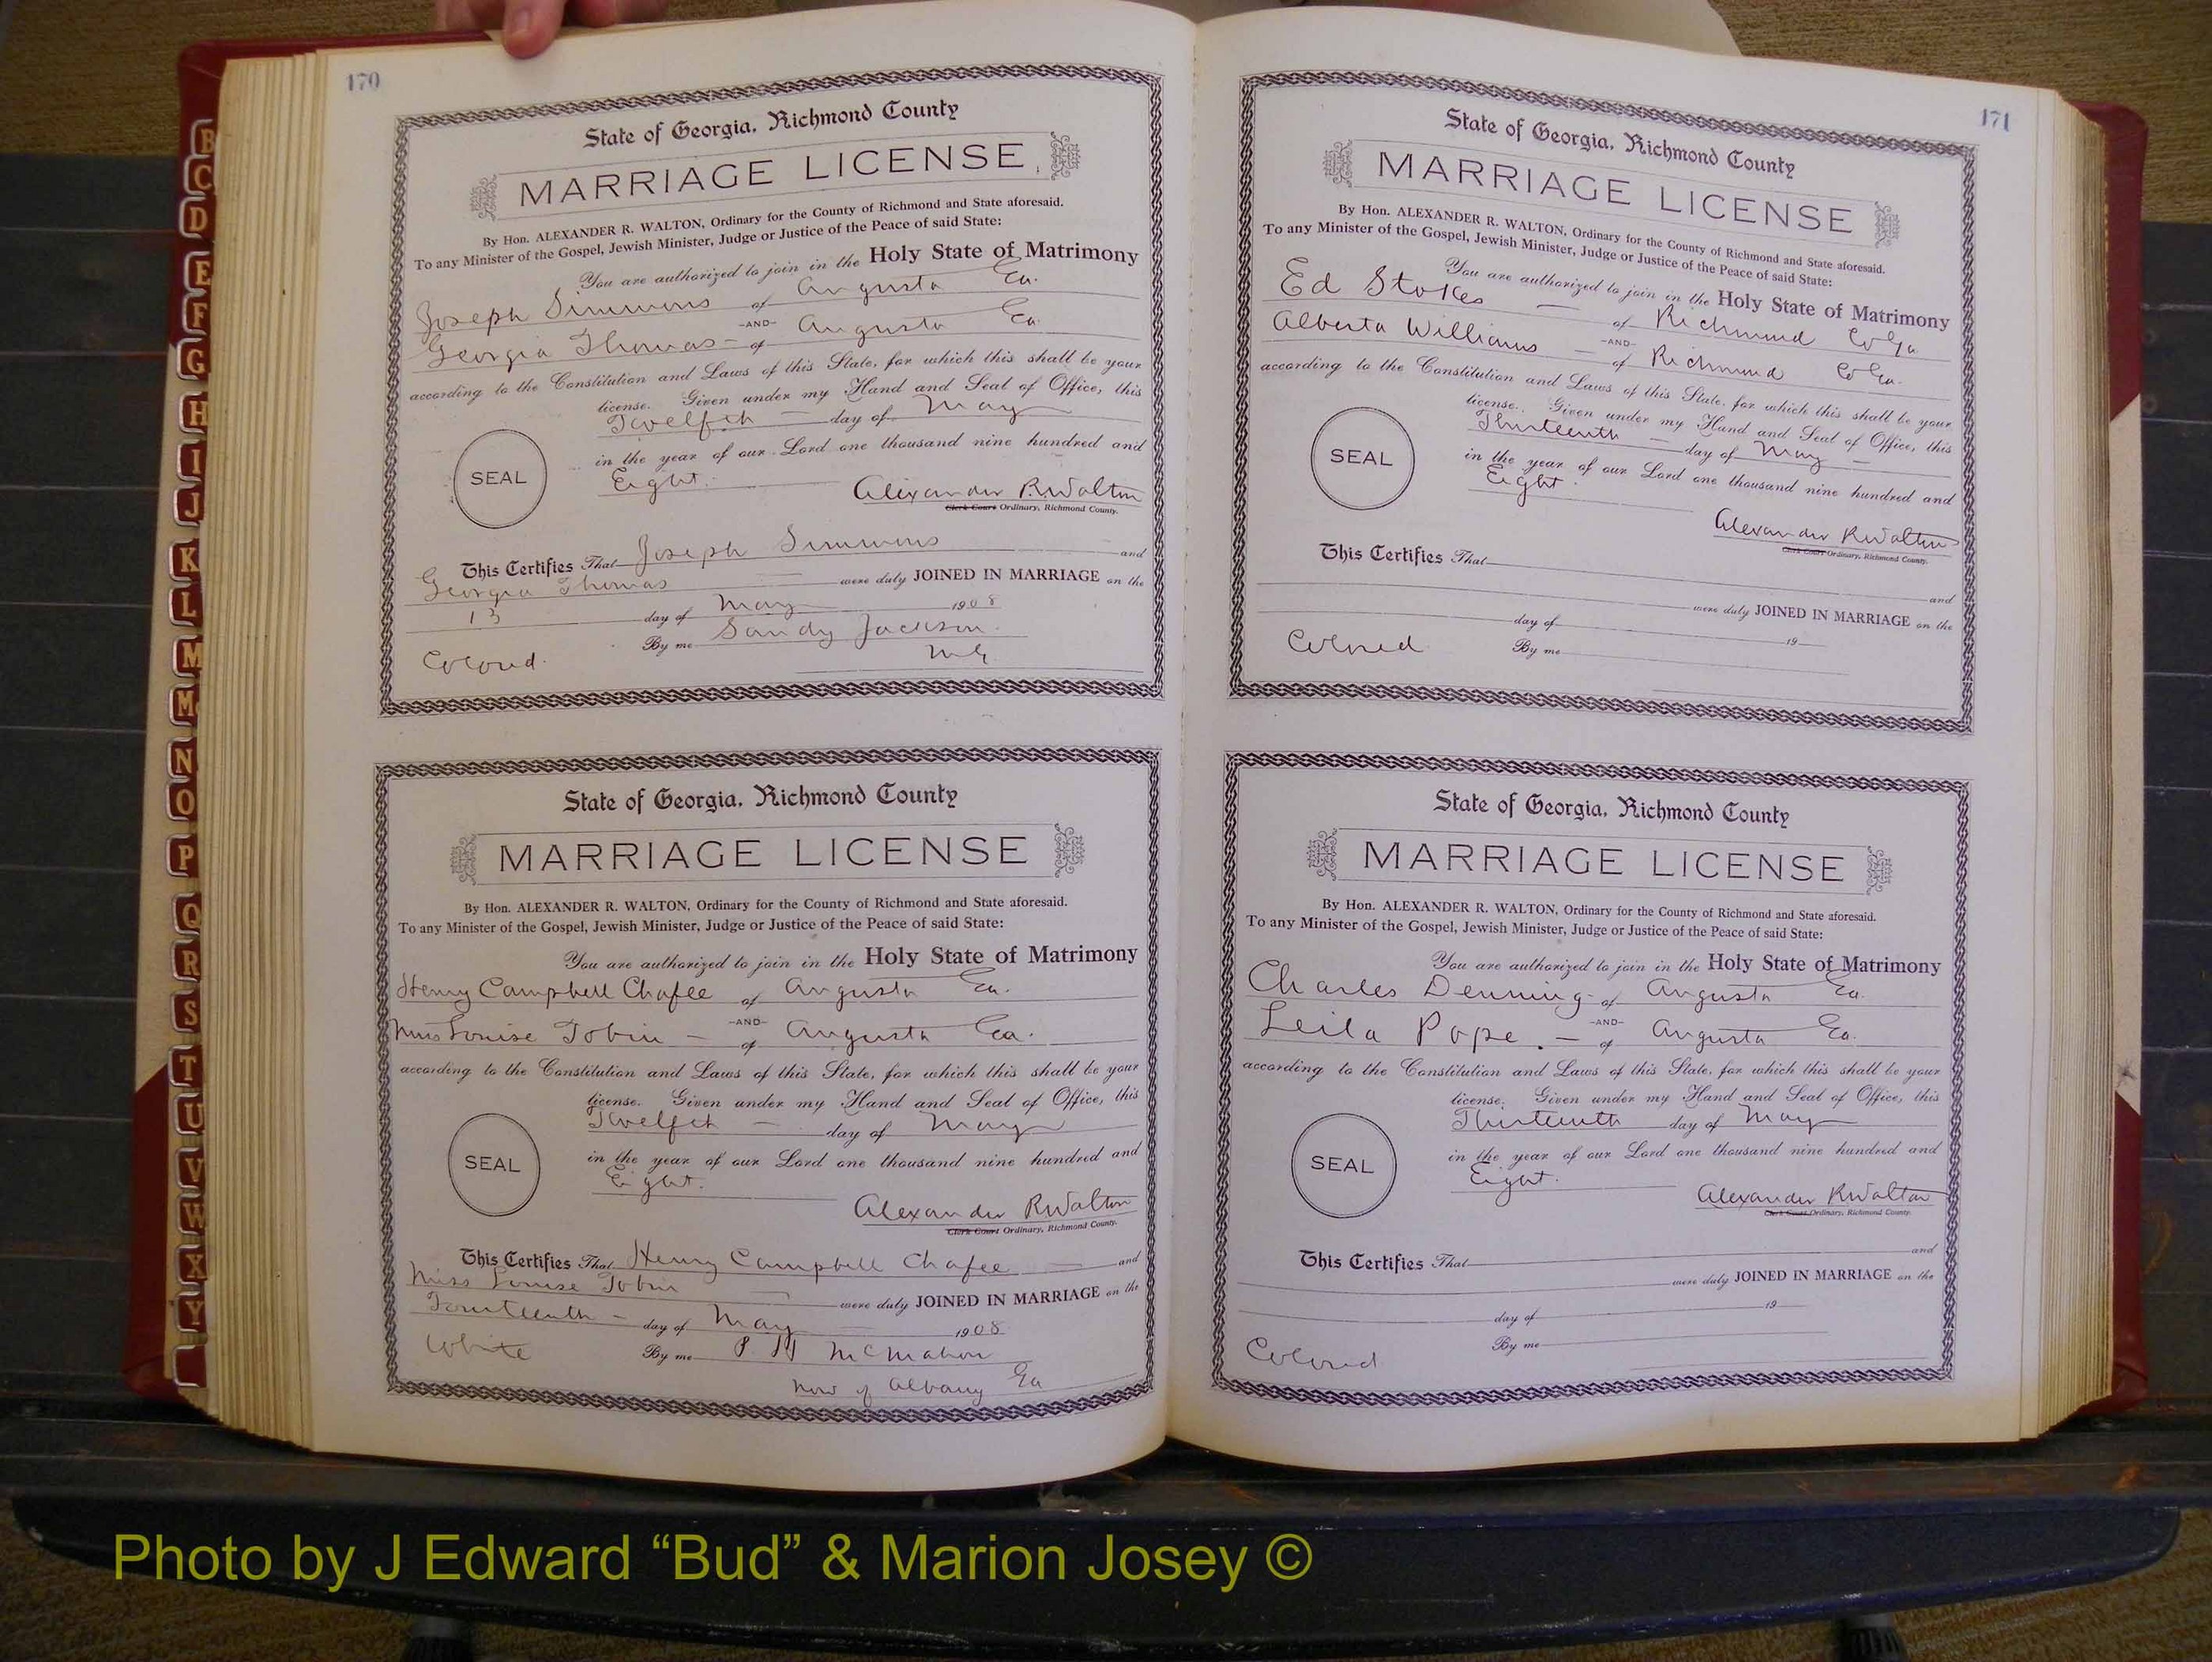 170
State of Georgia, Richmond County
MARRIAGE LICENSE
By Hon. ALEXANDER R. WALTON, Ordinary for the County of Richmond and State aforesaid.
To any Minister of the Gospel, Jewish Minister, Judge or Justice of the Peace of said State:
You are authorized to join in the Holy State of Matrimony
Joseph Simmons of Augusta Ga.
-AND-
Georgia Thomas - of Augusta Ga.
according to the Constitution and Laws of this State, for which this shall be your
license. Given under my Hand and Seal of Office, this
Twelfth - day of May
SEAL
in the year of our Lord one thousand nine hundred and
Eight.
Alexander R. Walton
Clerk Court Ordinary, Richmond County.
This Certifies That Joseph Simmons and
Georgia Thomas were duly JOINED IN MARRIAGE on the
13 day of May 1908
By me Sandy Jackson
Colored. M.G.
State of Georgia, Richmond County
MARRIAGE LICENSE
By Hon. ALEXANDER R. WALTON, Ordinary for the County of Richmond and State aforesaid.
To any Minister of the Gospel, Jewish Minister, Judge or Justice of the Peace of said State:
You are authorized to join in the Holy State of Matrimony
Henry Campbell Chafee of Augusta Ga.
-AND-
Miss Louise Tobin - of Augusta Ga.
according to the Constitution and Laws of this State, for which this shall be your
license. Given under my Hand and Seal of Office, this
Twelfth - day of May
SEAL
in the year of our Lord one thousand nine hundred and
Eight.
Alexander R Walton
Clerk Court Ordinary, Richmond County.
This Certifies That Henry Campbell Chafee and
Miss Louise Tobin were duly JOINED IN MARRIAGE on the
Fourteenth - day of May 1908
White By me P H McMahon
now of Albany Ga
171
State of Georgia, Richmond County
MARRIAGE LICENSE
By Hon. ALEXANDER R. WALTON, Ordinary for the County of Richmond and State aforesaid.
To any Minister of the Gospel, Jewish Minister, Judge or Justice of the Peace of said State:
You are authorized to join in the Holy State of Matrimony
Ed Stokes - of Richmond Co Ga
-AND-
Alberta Williams - of Richmond Co Ga.
according to the Constitution and Laws of this State, for which this shall be your
license. Given under my Hand and Seal of Office, this
Thirteenth - day of May -
SEAL
in the year of our Lord one thousand nine hundred and
Eight.
Alexander R Walton
Clerk Court Ordinary, Richmond County.
This Certifies That and
were duly JOINED IN MARRIAGE on the
day of 19
Colored By me
State of Georgia, Richmond County
MARRIAGE LICENSE
By Hon. ALEXANDER R. WALTON, Ordinary for the County of Richmond and State aforesaid.
To any Minister of the Gospel, Jewish Minister, Judge or Justice of the Peace of said State:
You are authorized to join in the Holy State of Matrimony
Charles Denning - of Augusta Ga.
-AND-
Leila Pope. - of Augusta Ga.
according to the Constitution and Laws of this State, for which this shall be your
license. Given under my Hand and Seal of Office, this
Thirteenth day of May
SEAL
in the year of our Lord one thousand nine hundred and
Eight.
Alexander R Walton
Clerk Court Ordinary, Richmond County.
This Certifies That and
were duly JOINED IN MARRIAGE on the
day of 19
Colored By me
B
C
D
E
F
G
H
I
J
K
L
M
Mc
N
O
P
Q
R
S
T
U
V
W
X
Y
Photo by J Edward “Bud” & Marion Josey ©